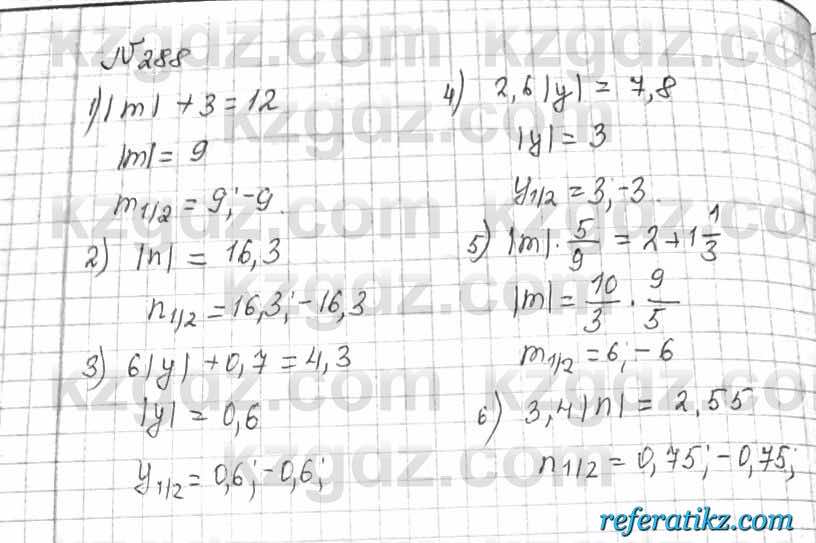 №288
1) |m| + 3 = 12
|m| = 9
m1/2 = 9; -9.
2) |n| = 16,3
n1/2 = 16,3; -16,3
3) 6|y| + 0,7 = 4,3
|y| = 0,6
y1/2 = 0,6; -0,6;
4) 2,6|y| = 7,8
|y| = 3
y1/2 = 3; -3.
5) |m| · 5/9 = 2 + 1 1/3
|m| = 10/3 · 9/5
m1/2 = 6; -6
6) 3,4|n| = 2,55
n1/2 = 0,75; -0,75;
referatikz.com
kzgdz.com